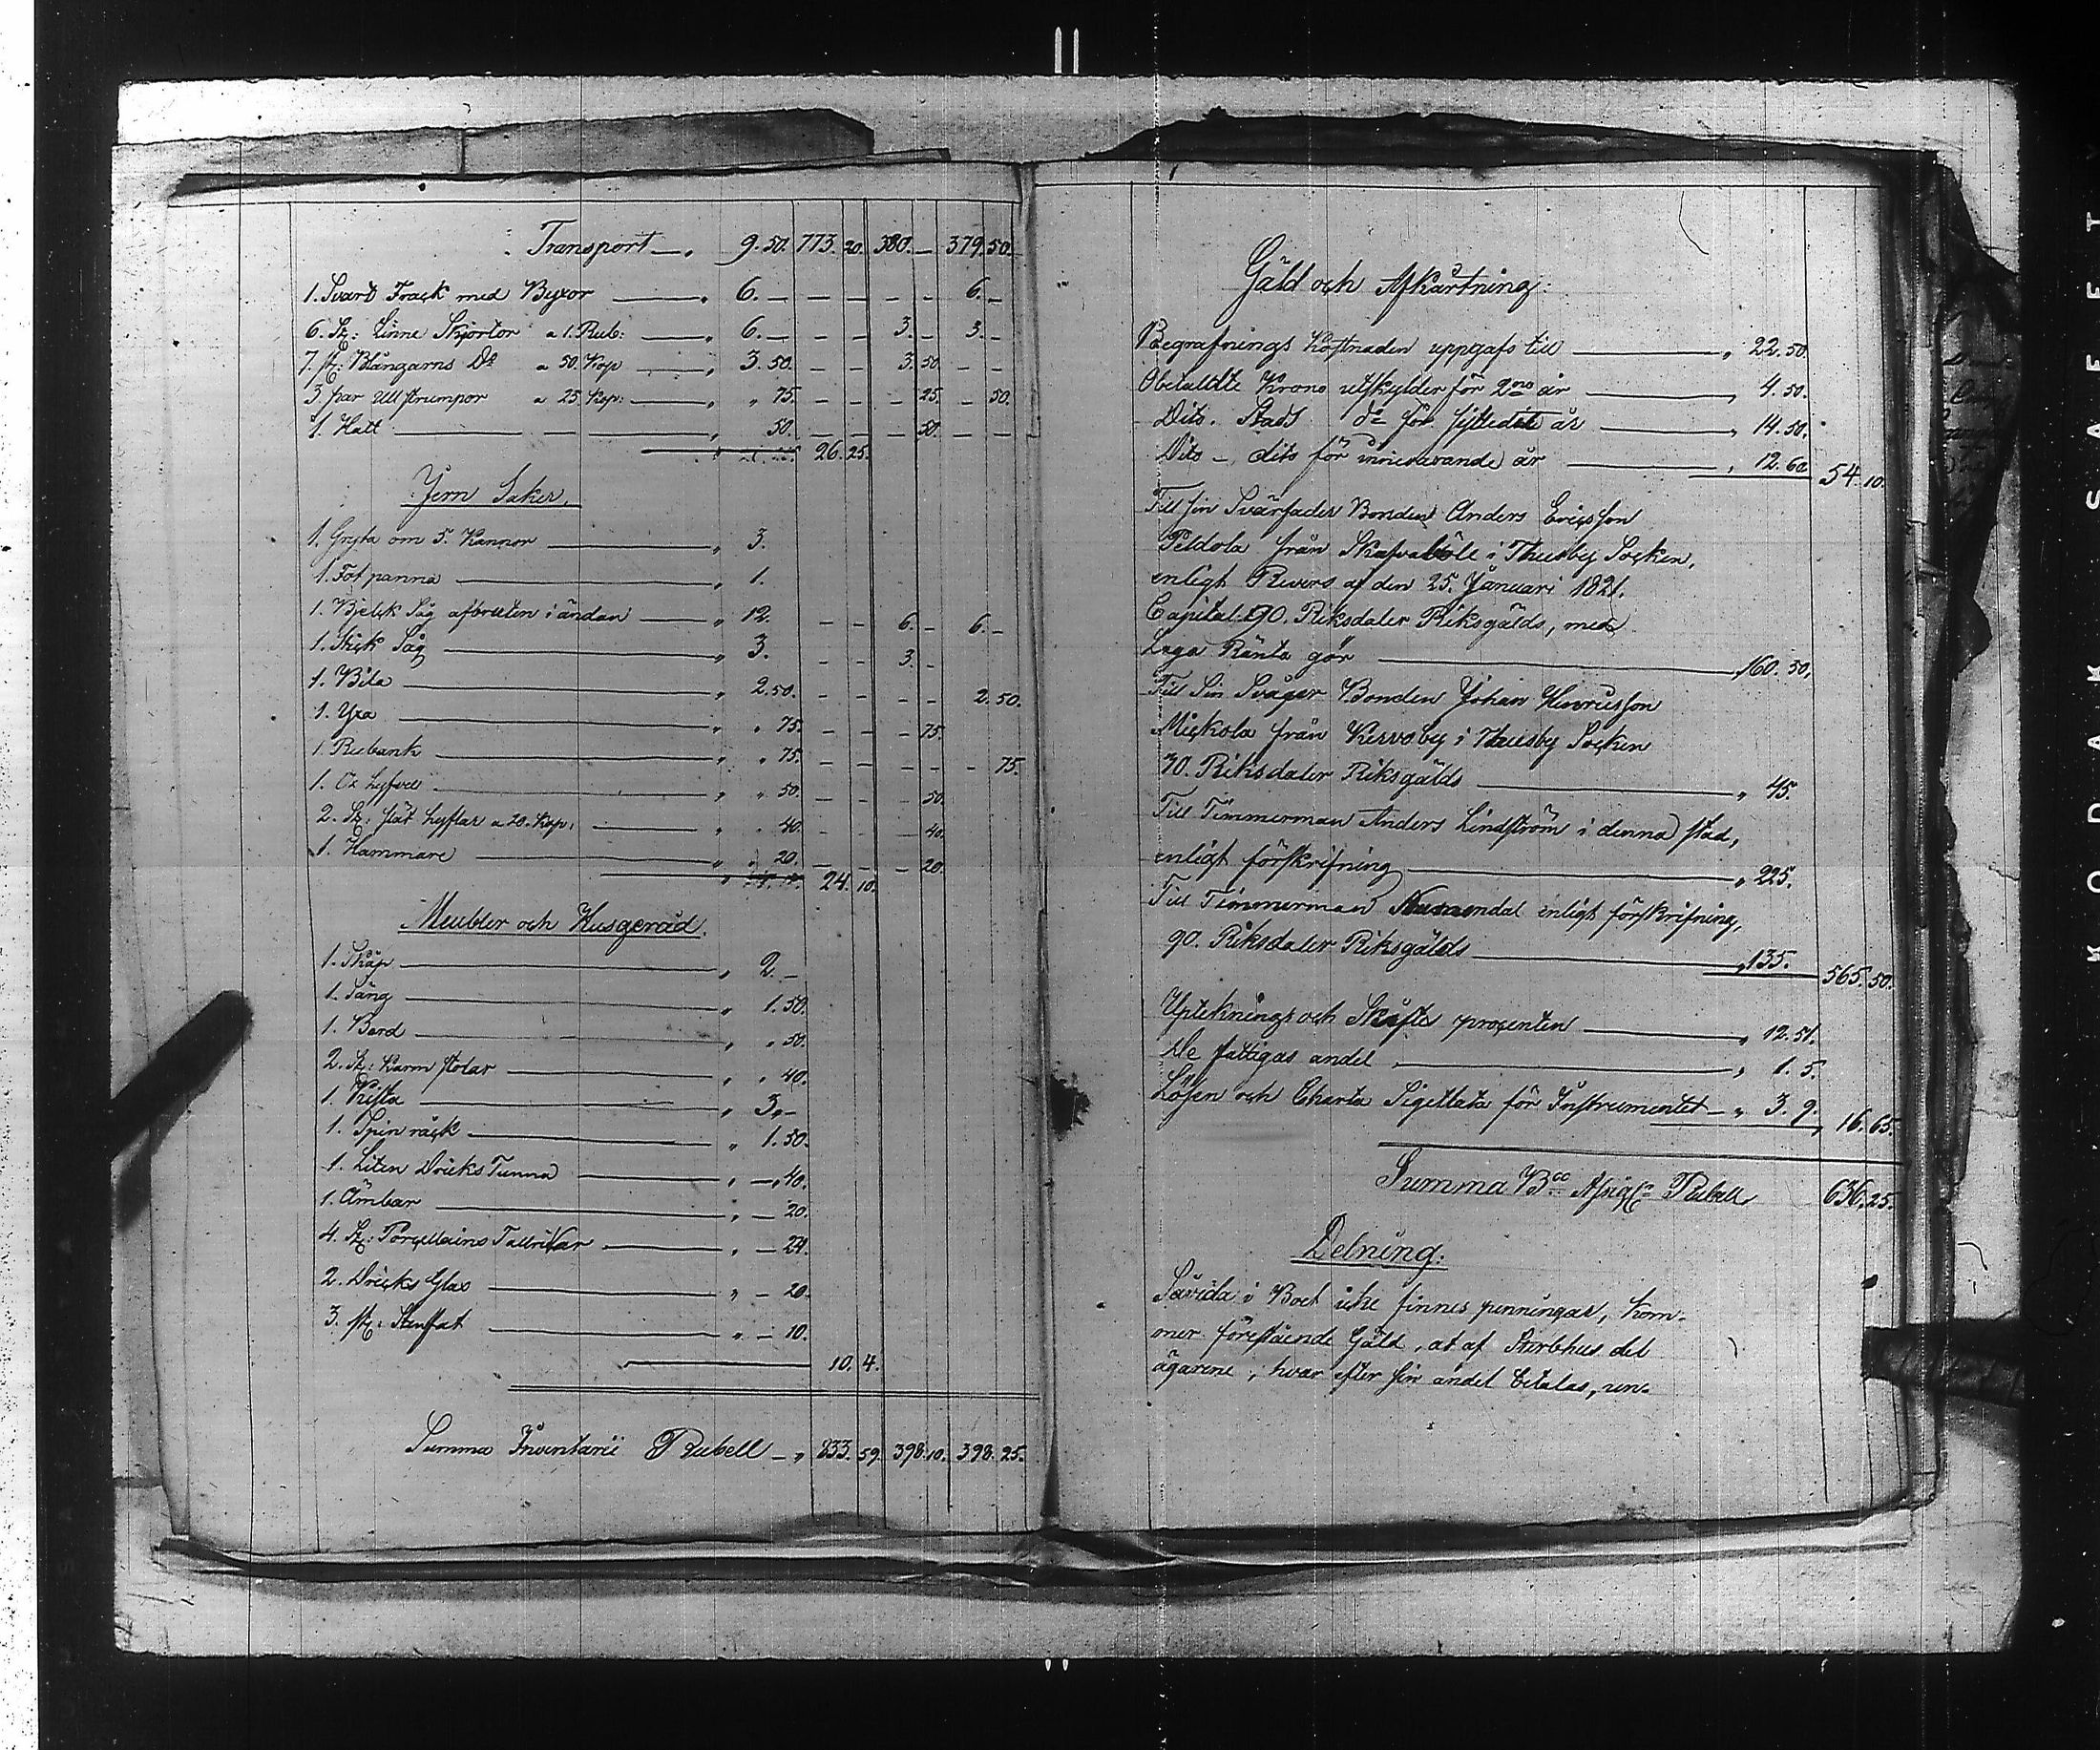 Transport — „ 9.50. 773. 20. 380. — 379. 50.
1. Svart Frack med Byxor — „ 6. — — — — — 6. —
6. St: Linne Skjortor a 1. Rub: — „ 6. — — — 3. — 3. —
7. st: Blångarns Do a 50. Kop — „ 3. 50. — — 3. 50. — —
3. par Ull strumpor a 25. Kop: — „ „ 75. — — — 25. — 50.
1. Hatt — „ 50. — — — 50. — —
„ 26. 25.
Jern Saker.
1. Gryta om 5. Kannor — „ 3.
1. Fot panna — „ 1.
1. Bjelck Såg afbruten i ändan — „ 12. — — 6. — 6. —
1. Stick Såg — „ 3. — — 3. —
1. Bila — „ 2. 50. — — — — 2. 50.
1. Yxa — „ „ 75. — — — 75.
1. Rubank — „ „ 75. — — — — — 75.
1. Ox hyfvel — „ „ 50. — — — 50.
2. St: slät hyflar a 20. Kop: — „ „ 40. — — — 40.
1. Hammare — „ „ 20. — — — 20.
„ 24. 10.
Meubler och Husgeråd.
1. Skåp — „ 2. —
1. Säng — „ 1. 50.
1. Bord — „ „ 50.
2. St: Karm stolar — „ „ 40.
1. Kista — „ 3. —
1. Spin råck — „ 1. 50.
1. Liten Dricks Tunna — „ — 40.
1. Ämbar — „ — 20.
4. St: Porcellains Tallrikar — „ — 24.
2. Dricks Glas — „ — 20.
3. st: Stenfat — „ — 10.
10. 4.
Summa Inventarii Rubell — „ 833. 59. 398. 10. 398. 25.
Gäld och Afkårtning:
Begrafnings Kostnaden uppgafs till — „ 22. 50.
Obetaldte Krono utskylder för 2ne år — „ 4. 50.
Dito. Stads do för sistledit år — „ 14. 50.
Dito — dito för innevarande år — „ 12. 60 54. 10.
Till sin Svärfader Bonden Anders Ericsson
Peldola från Skafvaböle i Thusby Socken,
enligt Revers af den 25. Januari 1821.
Capital: 90. Riksdaler Riksgälds, med
Laga Ränta gör — „ 160. 50.
Till Sin Svåger Bonden Johan Henricsson
Mickola från Kervoby i Thusby Socken
30. Riksdaler Riksgälds — „ 45.
Till Timmerman Anders Lindström i denna stad,
enligt förskrifning — „ 225.
Till Timmerman enligt förskrifning,
90. Riksdaler Riksgälds — „ 135. 565. 50.
Upteknings och Skiftes procenten — „ 12. 51.
De fattigas andel — „ 1. 5.
Lösen och Charta Sigillata för Instrumentet — „ 3. 9. 16. 65.
Summa Bco Assigs Rubell 636. 25.
Delning:
Såvida i Boet icke finnes penningar, kom-
mer förestående Gäld, at af Sterbhus del
ägarene, hvar efter sin andel betalas, un-